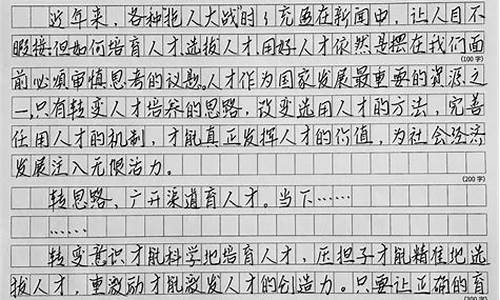 近年来，各种“抢人大战”时时充盈在新闻中，让人目不
暇接。但如何培育人才选拔人才、用好人才依然是摆在我们面
(100字)
前必须审慎思考的议题。人才作为国家发展最重要的资源之
一，只有转变人才培养的思路，改变选用人才的方法，完善
任用人才的机制，才能真正发挥人才的价值，为社会经济
发展注入无限活力。
(200字)
转思路，广开渠道育人才。当下……
……
转变意识才能科学地培育人才，压担子才能精准地选
拔人才，重激励才能激发人才的创造力。只要让正确的育
(300字)